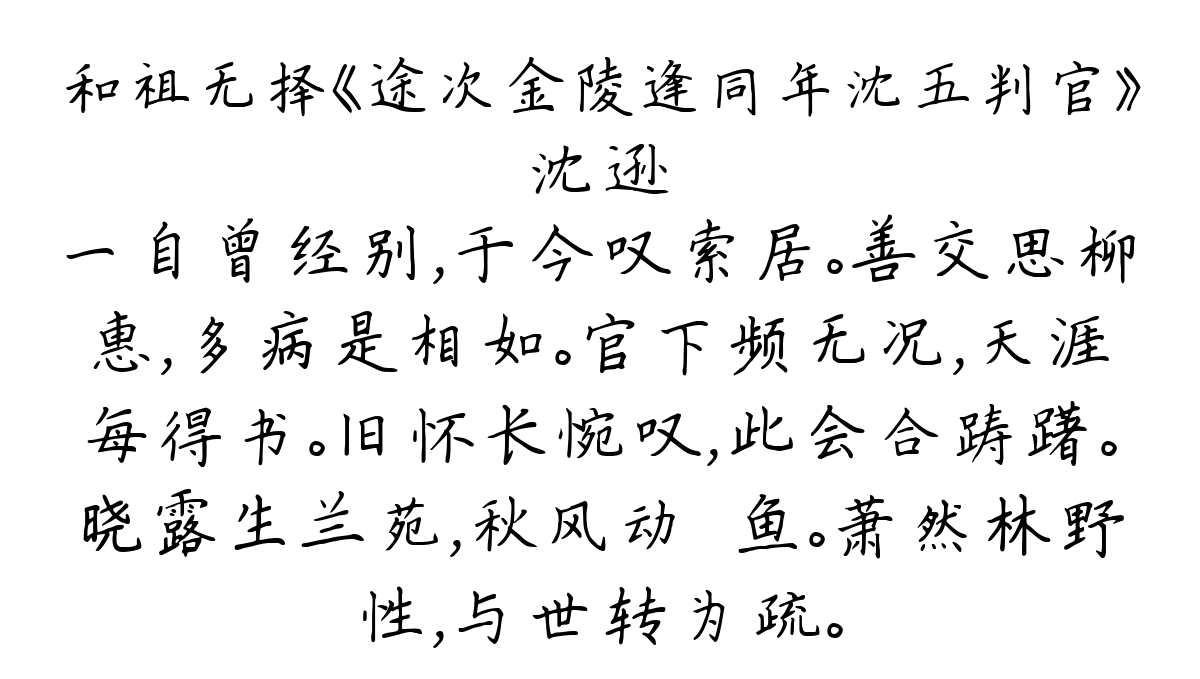 和祖无择《途次金陵逢同年沈五判官》
沈逊
一自曾经别,于今叹索居。善交思柳
惠,多病是相如。官下频无况,天涯
每得书。旧怀长惋叹,此会合踌躇。
晓露生兰苑,秋风动 鱼。萧然林野
性,与世转为疏。